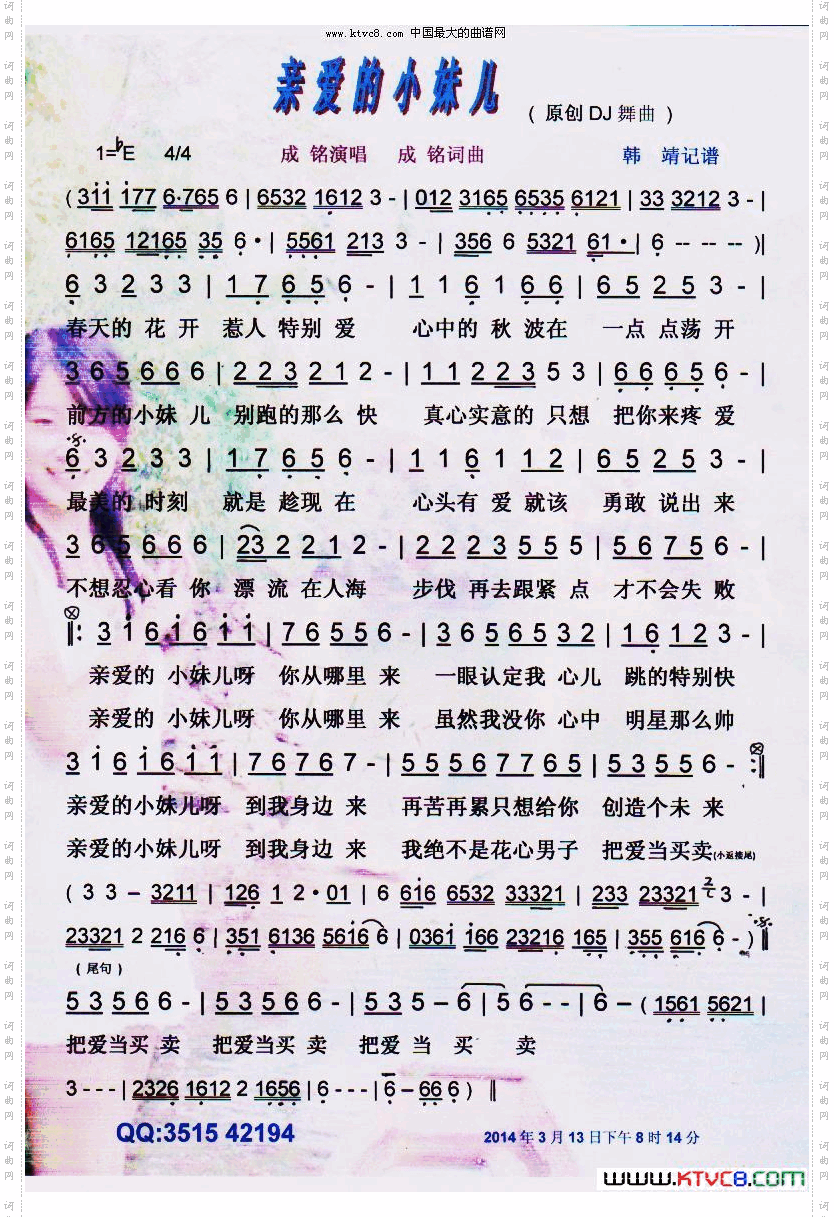 www.ktvc8.com 中国最大的曲谱网
亲爱的小妹儿
( 原创DJ舞曲 )
1=♭E 4/4 成 铭演唱 成 铭词曲 韩 靖记谱
( 3i̇i̇ i̇77 6·765 6 | 6532 1612 3 - | 012 3165 6535 6121 | 33 3212 3 - |
6165 12165 35 6· | 5561 213 3 - | 356 6 5321 61· | 6 -- -- -- )||
6 3 2 3 3 | 1 7 6 5 6 - | 1 1 6 1 6 6 | 6 5 2 5 3 - |
春天的 花 开 惹人 特别 爱 心中的 秋 波在 一点 点荡 开
3 6 5 6 6 6 | 2 2 3 2 1 2 - | 1 1 2 2 3 5 3 | 6 6 6 5 6 - |
前方的小妹 儿 别跑的那么 快 真心实意的 只想 把你来疼 爱
6 3 2 3 3 | 1 7 6 5 6 - | 1 1 6 1 1 2 | 6 5 2 5 3 - |
最美的 时刻 就是 趁现 在 心头有 爱 就该 勇敢 说出 来
3 6 5 6 6 6 | 23 2 2 1 2 - | 2 2 2 3 5 5 5 | 5 6 7 5 6 - |
不想忍心看 你 漂 流 在人海 步伐 再去跟紧 点 才不会失 败
||: 3 i̇ 6 i̇ 6 i̇ i̇ | 7 6 5 5 6 - | 3 6 5 6 5 3 2 | 1 6 1 2 3 - |
亲爱的 小妹儿呀 你从哪里 来 一眼认定我 心儿 跳的特别快
亲爱的 小妹儿呀 你从哪里 来 虽然我没你 心中 明星那么帅
3 i̇ 6 i̇ 6 i̇ i̇ | 7 6 7 6 7 - | 5 5 5 6 7 7 6 5 | 5 3 5 5 6 - :||
亲爱的小妹儿呀 到我身边 来 再苦再累只想给你 创造个未 来
亲爱的小妹儿呀 到我身边 来 我绝不是花心男子 把爱当买卖(小返接尾)
( 3 3 – 3211 | 126 1 2·01 | 6 6i̇6 6532 33321 | 233 23321 2 3 - |
23321 2 216 6 | 351 6136 5616 6 | 0361̇ i̇66 23216 165 | 355 616 6 - )||
( 尾句 )
5 3 5 6 6 - | 5 3 5 6 6 - | 5 3 5 – 6 | 5 6 - - | 6 – ( 1561 5621 |
把爱当买 卖 把爱当买 卖 把爱 当 买 卖
3 - - - | 2326 1612 2 1656 | 6 - - - | 6 – 66 6 ) ||
QQ:3515 42194
2014 年 3 月 13 日下午 8 时 14 分
www.KTVC8.com
词曲网